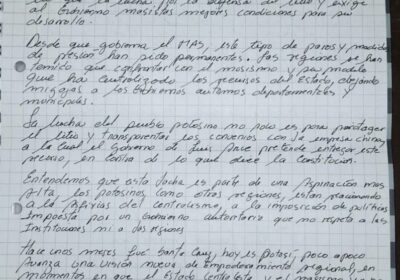 que la lucha por la defensa del litio y exigir
al Gobierno masista mejores condiciones para su
desarrollo.
Desde que gobierna el MAS, este tipo de paros y medidas
de presión han sido permanentes. Las regiones se han
tenido que enfrentar con el masismo y su modelo
que ha centralizado los recursos del Estado, dejando
migajas a los Gobiernos autonomos departamentales y
municipales.
La lucha del pueblo potosino no solo es para proteger
el litio y transparentar los convenios con la empresa china
a la cual el gobierno de Luis Arce pretende entregar este
recurso, en contra de lo que dice la Constitución.
Entendemos que esta lucha es parte de una aspiración mas
alta. Los potosinos como otras regiones, están reaccionando
a la del centralismo, a la imposición de políticas
impuesta por un Gobierno autoritario que no respeta a las
Instituciones ni a las regiones
Hace unos meses fué Santa Cruz, hoy es Potosí, poco a poco
avanza una visión nueva de empoderamiento regional, en
momentos en que el Estado centralista y el masismo